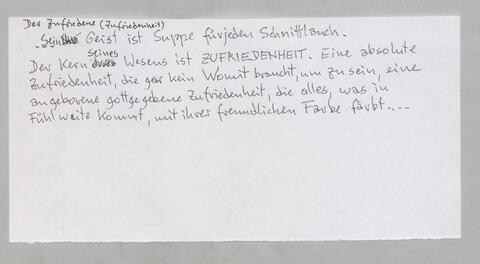 Der Zufriedene (Zufriedenheit)
Sein Geist ist Suppe für jeden Schnittlauch.
Der Kern seines Wesens ist ZUFRIEDENHEIT. Eine absolute
Zufriedenheit, die gar kein Womit braucht, um zu sein, eine
angeborene gottgegebene Zufriedenheit, die alles, was in
Fühlweite kommt, mit ihrer freundlichen Farbe färbt....